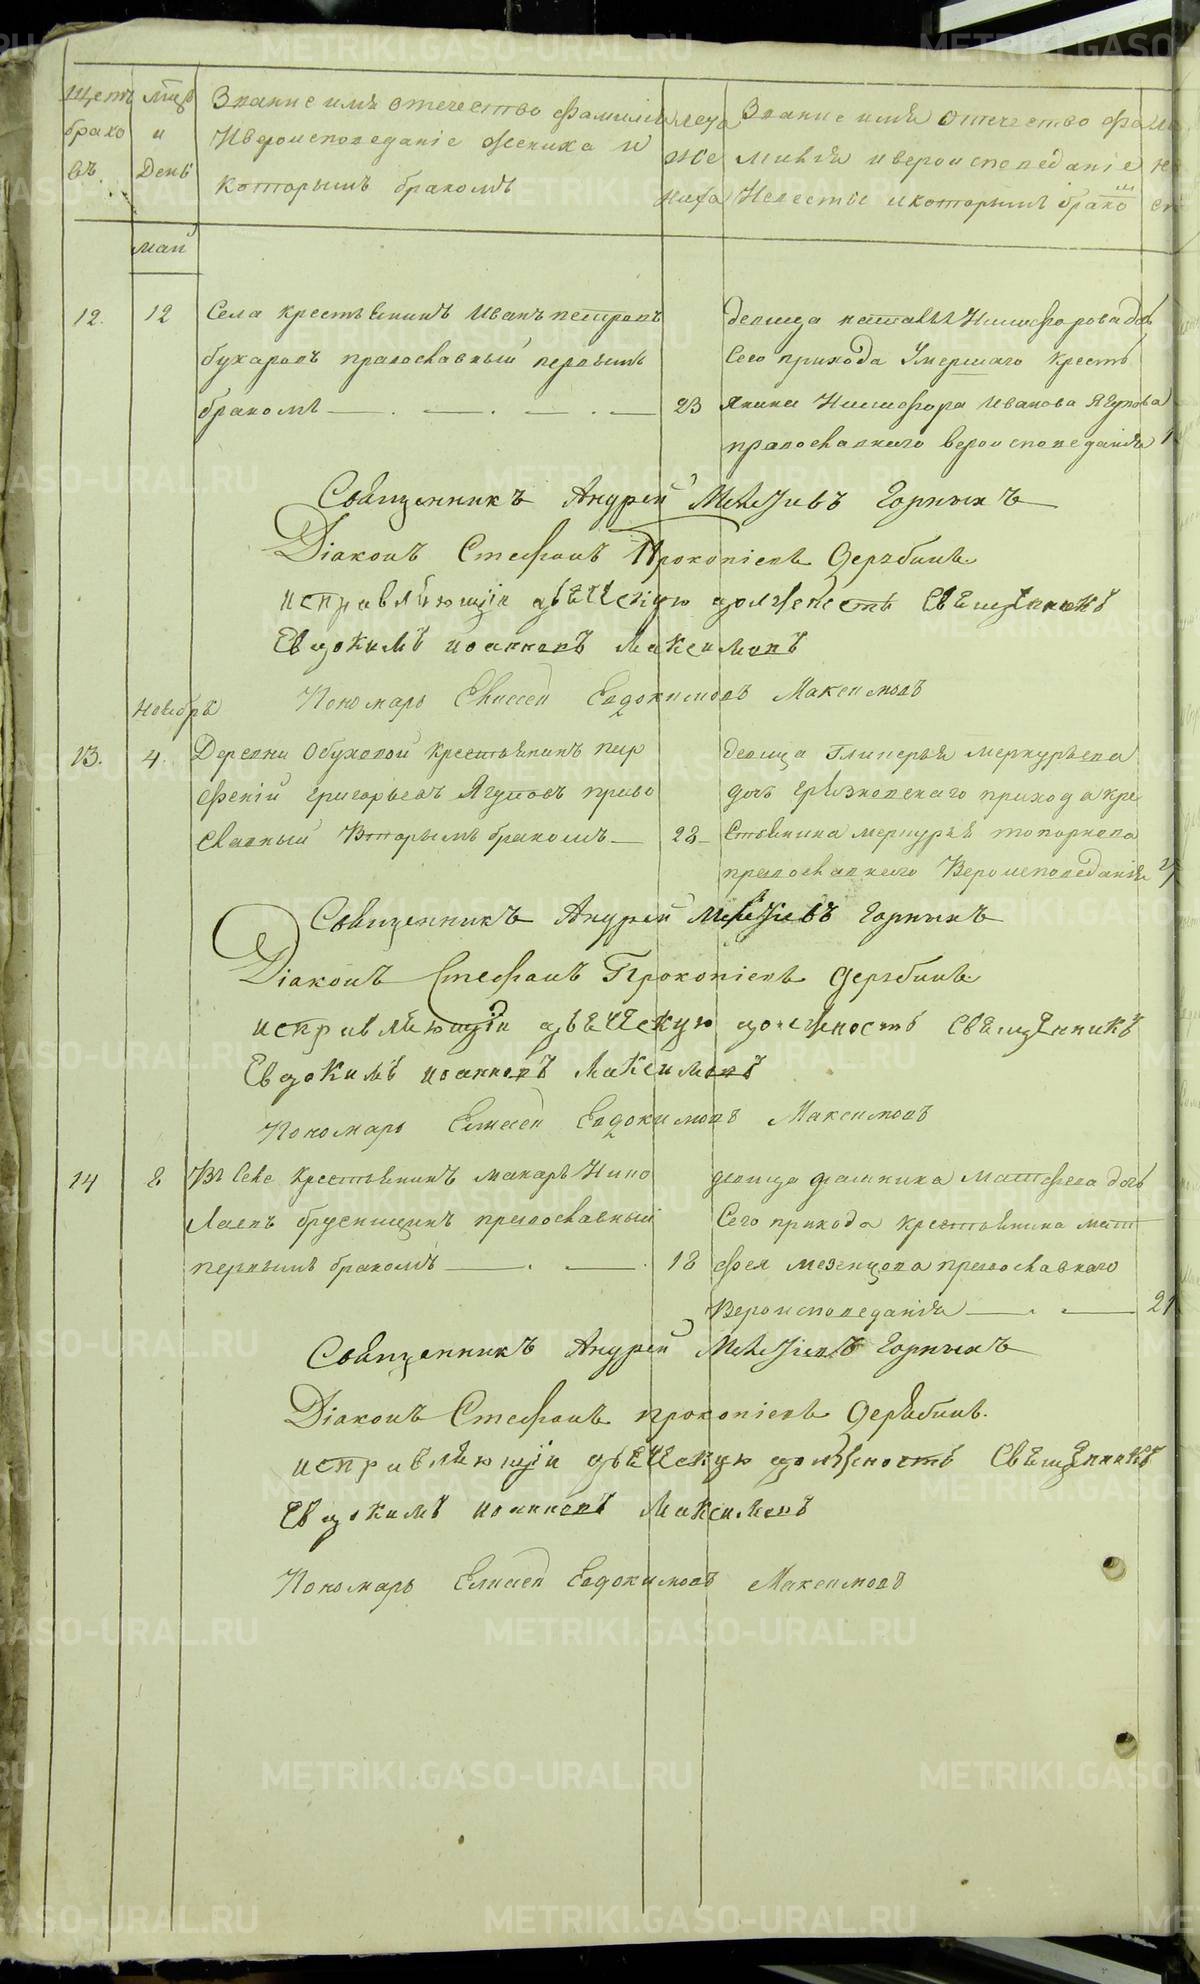 Щетъ брако въ.
мцъ и День
Званіе имя отечество фамилія
Ивероисповеданіе жениха и
которымъ бракомъ
лета жениха
Званіе имя отечество фа
милія ивероисповеданіе
Невесты икоторымъ брако
май
12. 12 Села крестьянинъ Иванъ петровъ
бухаровъ православный первымъ
бракомъ 23
девица наталья Никифорова дочь
Сего прихода Умершаго кресть
янина Никифора Иванова Ягупова
православнаго вероисповеданія
Священникъ Андрей Горныхъ
Діаконъ Стефанъ Прокопіевъ Дерябинъ
исправляющій дьяческую должность Священникъ
Евдокимъ иоанновъ Максимовъ
Пономарь Елисей Евдокимовъ Максимовъ
Ноябрь
13. 4. Деревни Обуховой крестьянинъ пар
феній григорьевъ Ягуповъ право
славный Вторымъ бракомъ 28
девица Гликерья меркурьева
дочь грязновскаго прихода кре
стьянина меркурья топоркова
православнаго Вероисповеданія
Священникъ Андрей Горныхъ
Діаконъ Стефанъ Прокопіевъ Дерябинъ
исправляющій дьяческую должность Священникъ
Евдокимъ иоанновъ Максимовъ
Пономарь Елисей Евдокимовъ Максимовъ
14 8 Въ Селе крестьянинъ макаръ Нико
лаевъ брусницинъ православный
первымъ бракомъ 18
девица матфеева дочь
Сего прихода крестьянина мат
фея мезенцова православнаго
Вероисповеданія 21
Священникъ Андрей Горныхъ
Діаконъ Стефанъ прокопіевъ Дерябинъ.
исправляющій дьяческую должность Священникъ
Евдокимъ иоанновъ Максимовъ
Пономарь Елисей Евдокимовъ Максимовъ
METRIKI.GASO-URAL.RU